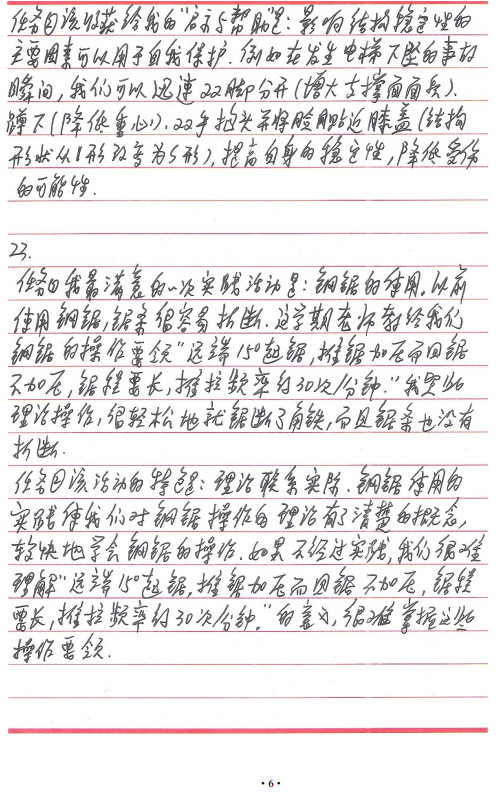 任务②该收获给我的“启示与帮助”是：影响结构稳定性的
主要因素可以用于自我保护．例如在发生电梯下坠的事故
瞬间，我们可以迅速双脚分开（增大支撑面面积）．
蹲下（降低重心）．双手抱头并将脸部贴近膝盖（结构
形状从1形改变为S形），提高自身的稳定性，降低受伤
的可能性．
23.
任务①我最满意的一次实践活动是：钢锯的使用．以前
使用钢锯，锯条很容易折断．这学期老师教给我们
钢锯的操作要领“远端15°起锯，推锯加压而回锯
不加压，锯程要长，推拉频率约30次/分钟．”我按此
理论操作，很轻松地就锯断了角铁，而且锯条也没有
折断．
任务②该活动的特色是：理论联系实际．钢锯使用的
实践使我们对钢锯操作的理论有了清楚的概念，
较快地学会钢锯的操作．如果不经过实践，我们很难
理解“远端15°起锯，推锯加压而回锯不加压，锯程
要长，推拉频率约30次/分钟．”的意义，很难掌握这些
操作要领．
·6·